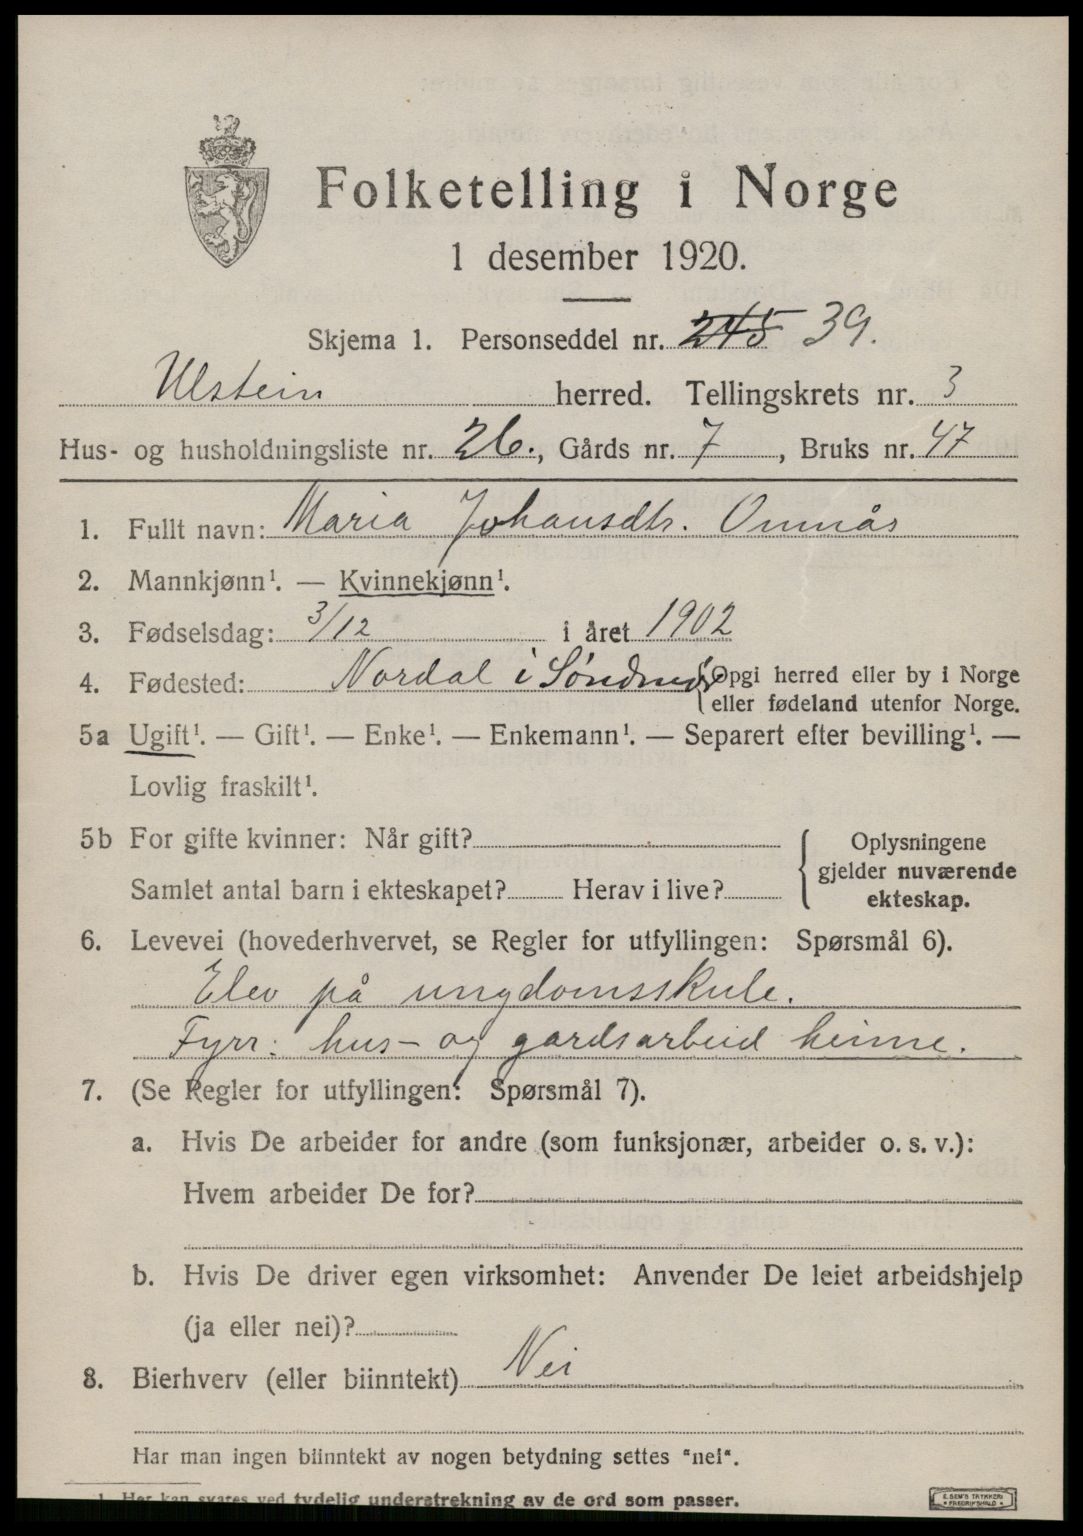 Folketelling i Norge
1 desember 1920.
Skjema 1. Personseddel nr. 245 39.
Ulstein herred. Tellingskrets nr. 3
Hus- og husholdningsliste nr. 26., Gårds nr. 7, Bruks nr. 47
1. Fullt navn: Maria Johansdtr. Ommås
2. Mannkjønn¹. — Kvinnekjønn¹.
3. Fødselsdag: 3/12 i året 1902
4. Fødested: Nordal i Søndmør {Opgi herred eller by i Norge
eller fødeland utenfor Norge.
5a Ugift¹. — Gift¹. — Enke¹. — Enkemann¹. — Separert efter bevilling¹. —
Lovlig fraskilt¹.
5b For gifte kvinner: Når gift?
Samlet antal barn i ekteskapet? Herav i live?
Oplysningene
gjelder nuværende
ekteskap.
6. Levevei (hovederhvervet, se Regler for utfyllingen: Spørsmål 6).
Elev på ungdomsskule.
Fyrr: hus- og gardsarbeid heime.
7. (Se Regler for utfyllingen: Spørsmål 7).
a. Hvis De arbeider for andre (som funksjonær, arbeider o. s. v.):
Hvem arbeider De for?
b. Hvis De driver egen virksomhet: Anvender De leiet arbeidshjelp
(ja eller nei)?
8. Bierhverv (eller biinntekt) Nei
Har man ingen biinntekt av nogen betydning settes "nei".
1 Her kan svares ved tydelig understrekning av de ord som passer.
E. SEM'S TRYKKERI
FREDRIKSHALD